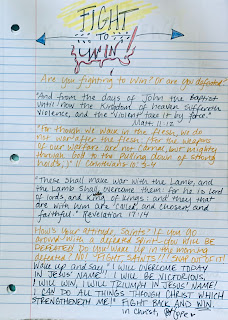 FIGHT
TO
WIN!
Are you fighting to win? Or are you defeated?
"And from the days of John the Baptist
until now the Kingdom of heaven suffereth
violence, and the violent take it by force."
Matt. 11:12
"For though we walk in the flesh, we do
not war after the flesh: For the weapons
of our warfare are not carnal, but mighty
through God to the pulling down of strong
holds;" II Corinthians 10:3-4
"These shall make war with the Lamb, and
the Lamb shall overcome them: for he is Lord
of lords, and King of kings: and they that
are with him are called, and chosen, and
faithful." Revelation 17:14
How's your attitude, saints? If you go
around with a defeated spirit - you WILL BE
DEFEATED! Do you wake up in the morning
defeated? NO! "FIGHT SAINTS!!!" SNAP OUT OF IT!
Wake up! and say, "I WILL OVERCOME TODAY
IN JESUS' NAME! I WILL BE VICTORIOUS,
I WILL WIN, I WILL TRIUMPH IN JESUS' NAME!
I CAN DO ALL THINGS THROUGH CHRIST WHICH
STRENGTHENETH ME!" FIGHT BACK AND WIN
in Christ,